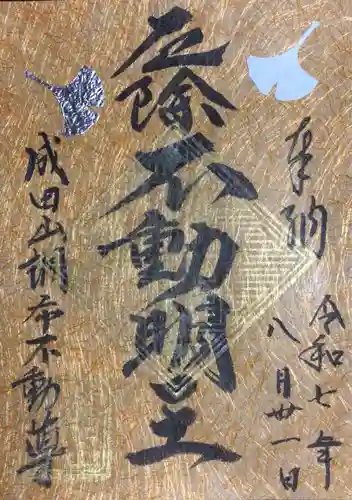 奉納
令和七年
八月卅一日
厄除不動明王
成田山調布不動尊